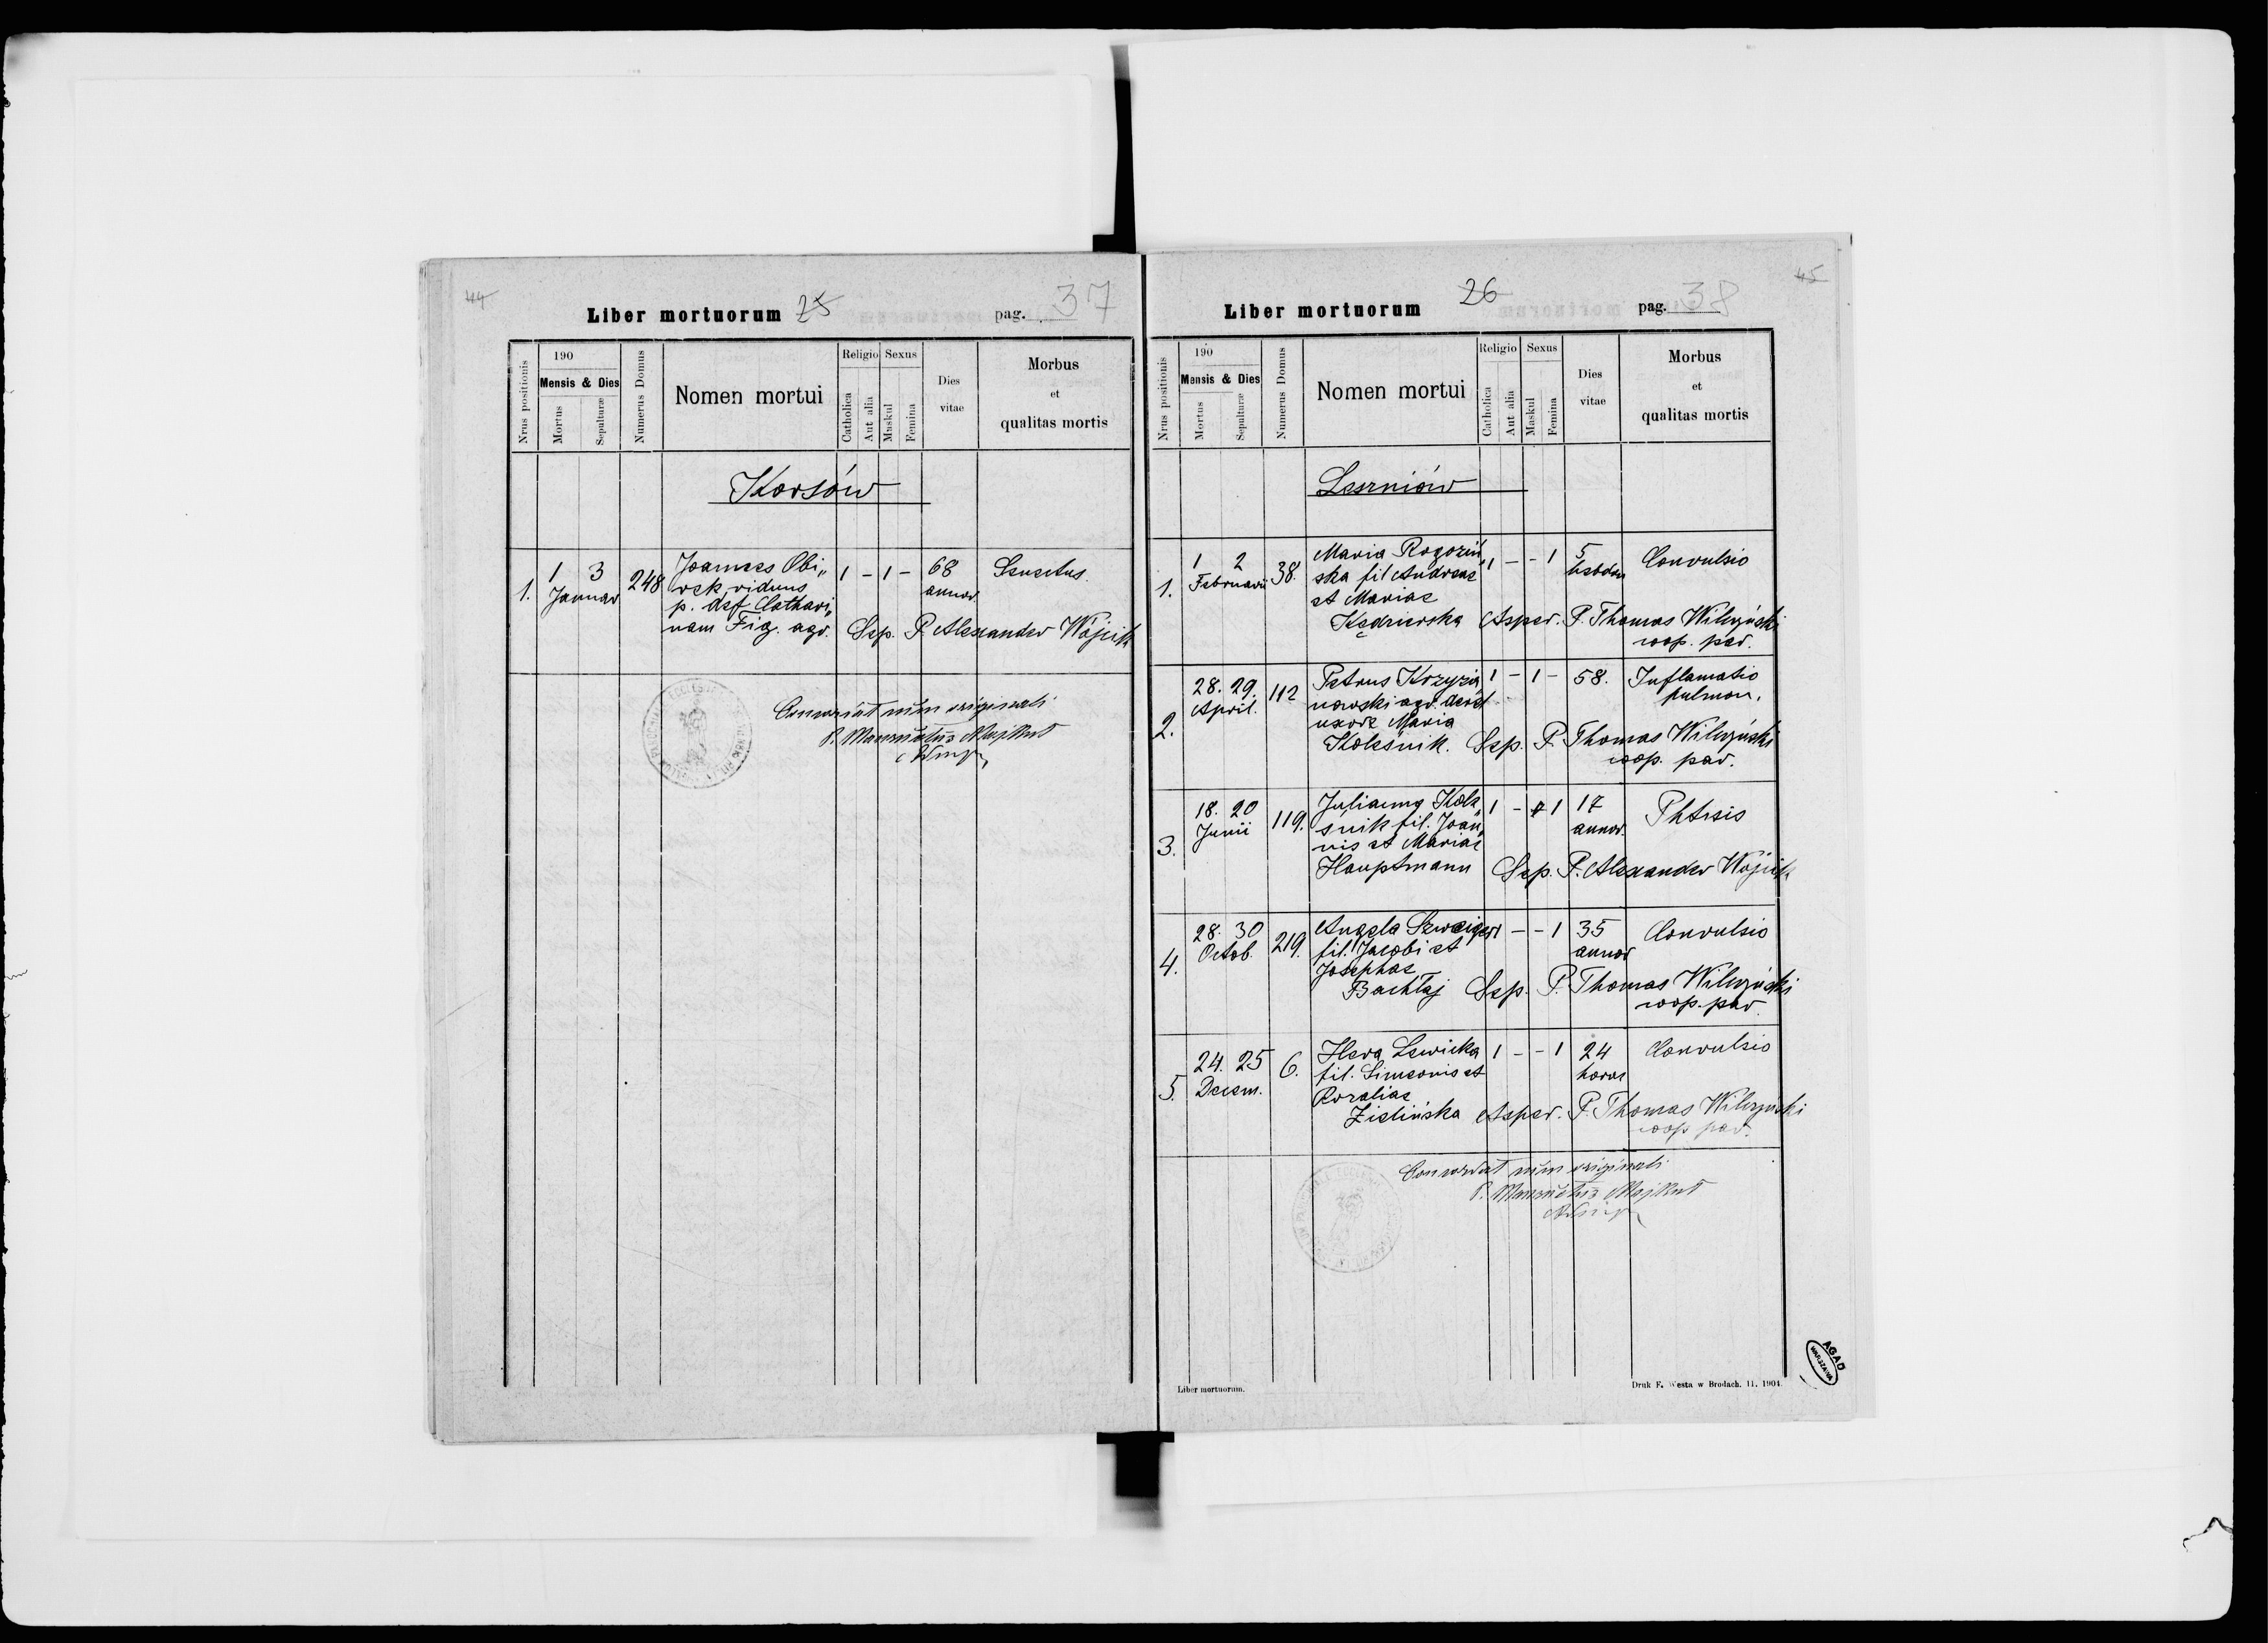 44
Liber mortuorum 25 pag. 37
Nrus positionis
190
Mensis & Dies
Mortus
Sepulturæ
Numerus Domus
Nomen mortui
Religio
Catholica
Aut alia
Sexus
Maskul
Femina
Dies
vitae
Morbus
et
qualitas mortis
Korsów
1. 1 3 248 Joannes Obi„ 1 - 1 - 68 Senectus.
Januar viduus annor.
p. def. Cathari„
nam Fig. agr. Sep. P. Alexander Wójcik
Concordat cum originali
P. Majkut
45
Liber mortuorum 26 pag. 38
Nrus positionis
190
Mensis & Dies
Mortus
Sepulturæ
Numerus Domus
Nomen mortui
Religio
Catholica
Aut alia
Sexus
Maskul
Femina
Dies
vitae
Morbus
et
qualitas mortis
Leszniów
1. 1 2 38. Maria Rogoziń„ 1 - - 1 5 Convulsio
Februarii ska fil Andreae hebdom
et Mariae
Kędzierska Asper. P. Thomas Wilczyński
coop. par.
2. 28. 29. 112 Petrus Krzyża 1 - 1 - 58. Inflamatio
April. nowski agr. pulmon.
uxore Maria
Koleśnik. Sep. P. Thomas Wilczyński
coop. par.
3. 18. 20 119. Julianna Kole„ 1 - 1 17 Phtisis
Junii śnik fil. Joan„ annor.
nis et Mariae
Hauptmann Sep. P. Alexander Wójcik
4. 28. 30 219. Angela Szwaiger 1 - - 1 35 Convulsio
Octob. fil. Jacobi et annor
Josephae
Bachtaj Sep. P. Thomas Wilczyński
coop. par.
5. 24. 25 6. Hera Lewicka 1 - - 1 24 Convulsio
Decem. fil. Simeonis et horae
Rozaliae
Zielińska Asper. P. Thomas Wilczyński
coop par.
Concordat cum originali
P. Majkut
Liber mortuorum.
Druk F. Westa w Brodach. 11. 1904.
AGAD
WARSZAWA